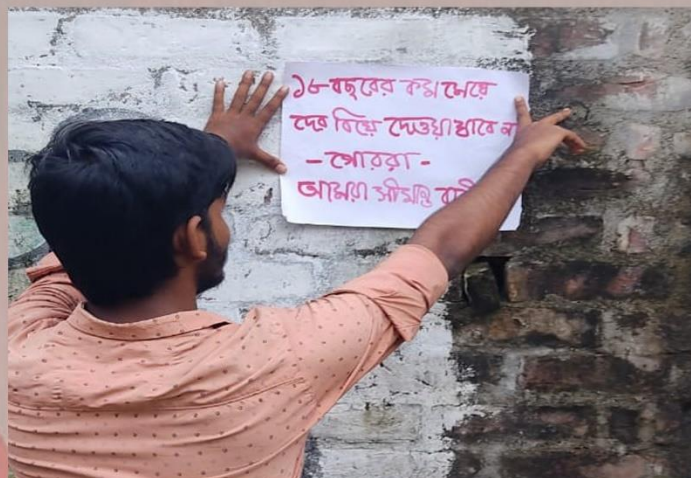 ১৮ বছরের কম মেয়ে
দের বিয়ে দেওয়া যাবে না
আমরা সীমান্ত